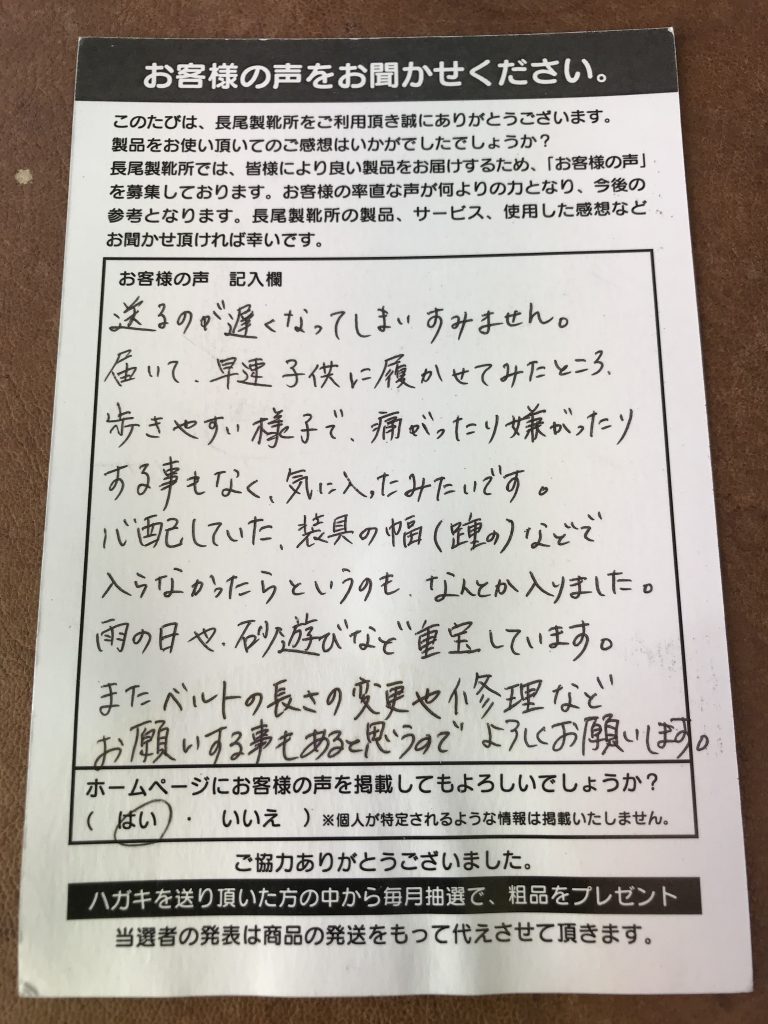 お客様の声をお聞かせください。
このたびは、長尾製靴所をご利用頂き誠にありがとうございます。
製品をお使い頂いてのご感想はいかがでしたでしょうか？
長尾製靴所では、皆様により良い製品をお届けするため、「お客様の声」
を募集しております。お客様の率直な声が何よりの力となり、今後の
参考となります。長尾製靴所の製品、サービス、使用した感想など
お聞かせ頂ければ幸いです。
お客様の声　記入欄
送るのが遅くなってしまいすみません。
届いて、早速子供に履かせてみたところ、
歩きやすい様子で、痛がったり嫌がったり
する事もなく、気に入ったみたいです。
心配していた、装具の幅(踵の)などで
入らなかったらというのも、なんとか入りました。
雨の日や、砂遊びなど重宝しています。
またベルトの長さの変更や修理など
お願いする事もあると思うのでよろしくお願いします。
ホームページにお客様の声を掲載してもよろしいでしょうか？
（　はい　・　いいえ　）※個人が特定されるような情報は掲載いたしません。
ご協力ありがとうございました。
ハガキを送り頂いた方の中から毎月抽選で、粗品をプレゼント
当選者の発表は商品の発送をもって代えさせて頂きます。